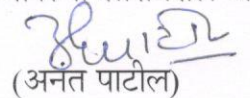 (अनंत पाटील)